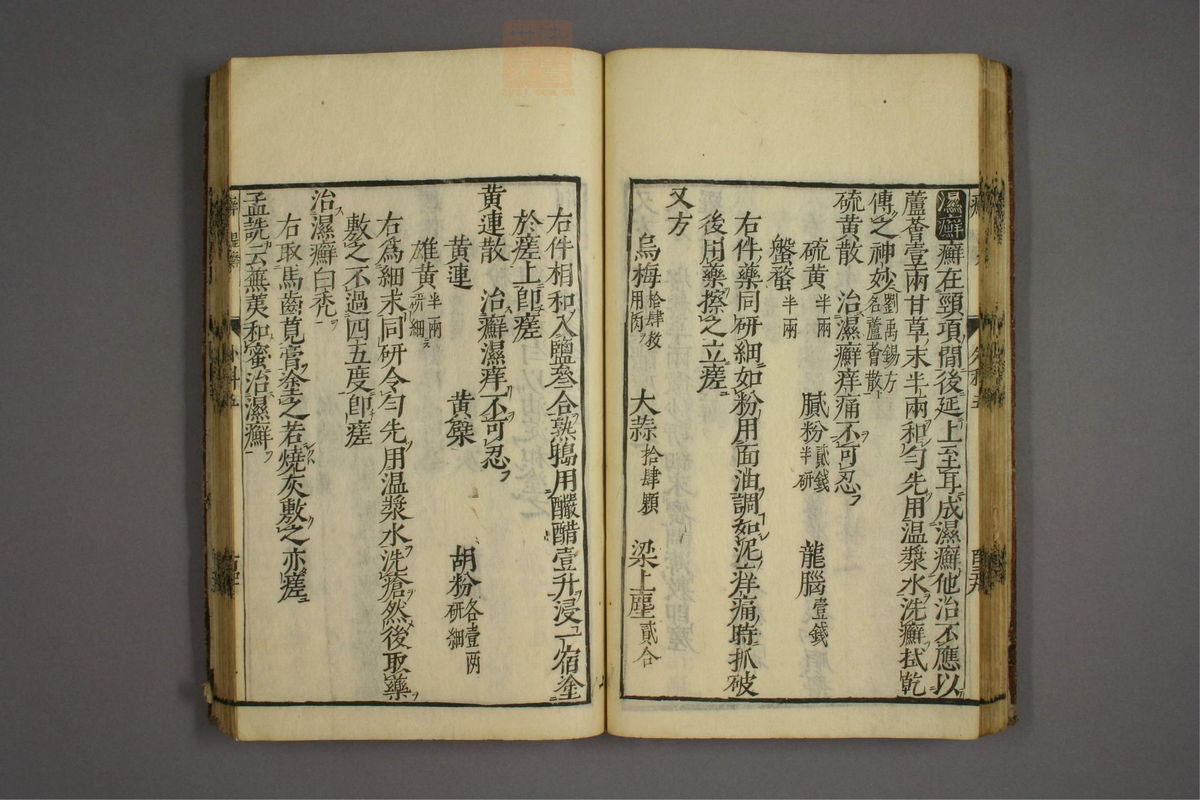 濕癬 癬在頸項間後延上至耳成濕癬他治不應以
蘆薈壹兩甘草末半兩和勻先用温漿水洗癬拭乾
傅之神妙劉禹錫方名蘆薈散
硫黄散 治濕癬痒痛不可忍
硫黄半兩 膩粉貳錢半研 龍腦壹錢
盤蝥半兩
右件藥同研細如粉用面油調如泥痒痛時抓破
後用藥擦之立瘥
又方
烏梅拾肆枚用肉 大蒜拾肆顆 梁上塵貳合
右件相和入鹽叄合熟䳡用釅醋壹升浸一宿塗
於瘥上卽瘥
黄連散 治癬濕痒不可忍
黄連 黄檗 胡粉各壹兩研細
雄黄半兩研細
右爲細末同研令勻先用温漿水洗瘡然後取藥
敷之不過四五度卽瘥
治濕癬白禿
右取馬齒莧膏塗之若燒灰敷之亦瘥
孟詵云蕪荑和蜜治濕癬